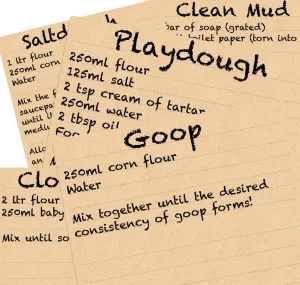 Clean Mud
bar of soap (grated)
toilet paper (torn into
Saltd
1 ltr flour
250ml corn
Water
Mix the f
saucepa
until
medi
Allo
an
Playdough
250ml flour
125ml salt
2 tsp cream of tartar
250ml water
2 tbsp oil
Foo
Goop
250ml corn flour
Water
Mix together until the desired
consistency of goop forms!
Clo
2 ltr flour
250ml baby
Mix until so